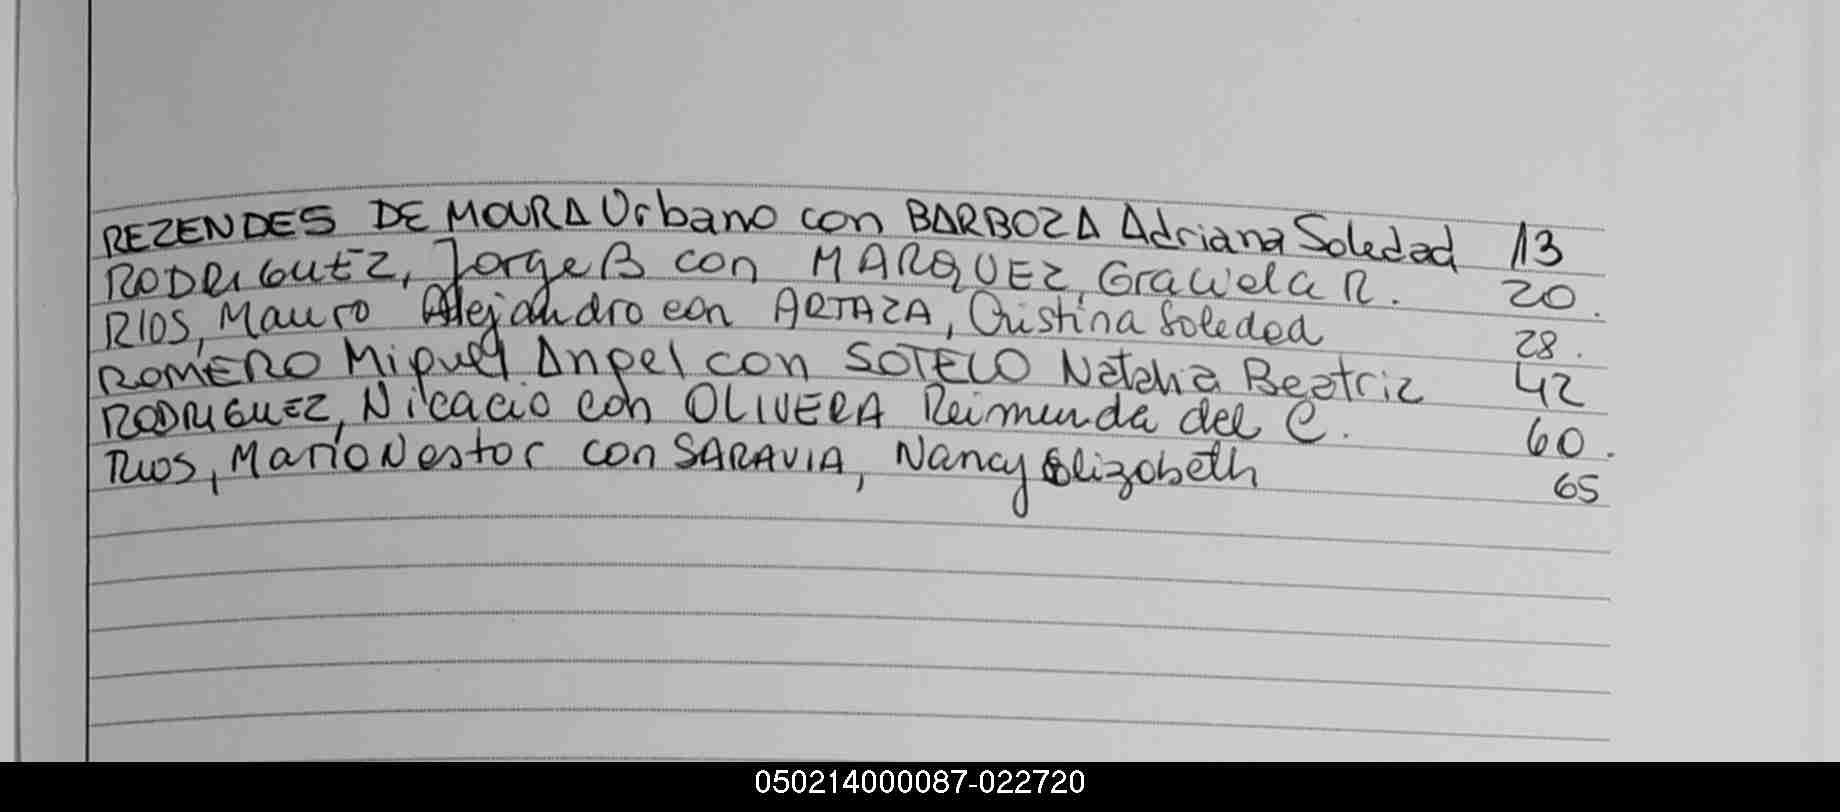 REZENDES DE MOURA Urbano con BARBOZA Adriana Soledad 13
RODRIGUEZ, Jorge B con MARQUEZ, Graciela R. 20.
RIOS, Mauro Alejandro con ARTAZA, Cristina Soledad 28.
ROMERO Miguel Angel con SOTELO Natalia Beatriz 42
RODRIGUEZ, Nicacio con OLIVERA Reimunda del C. 60.
RIOS, Mario Nestor con SARAVIA, Nancy Elizabeth 65
050214000087-022720